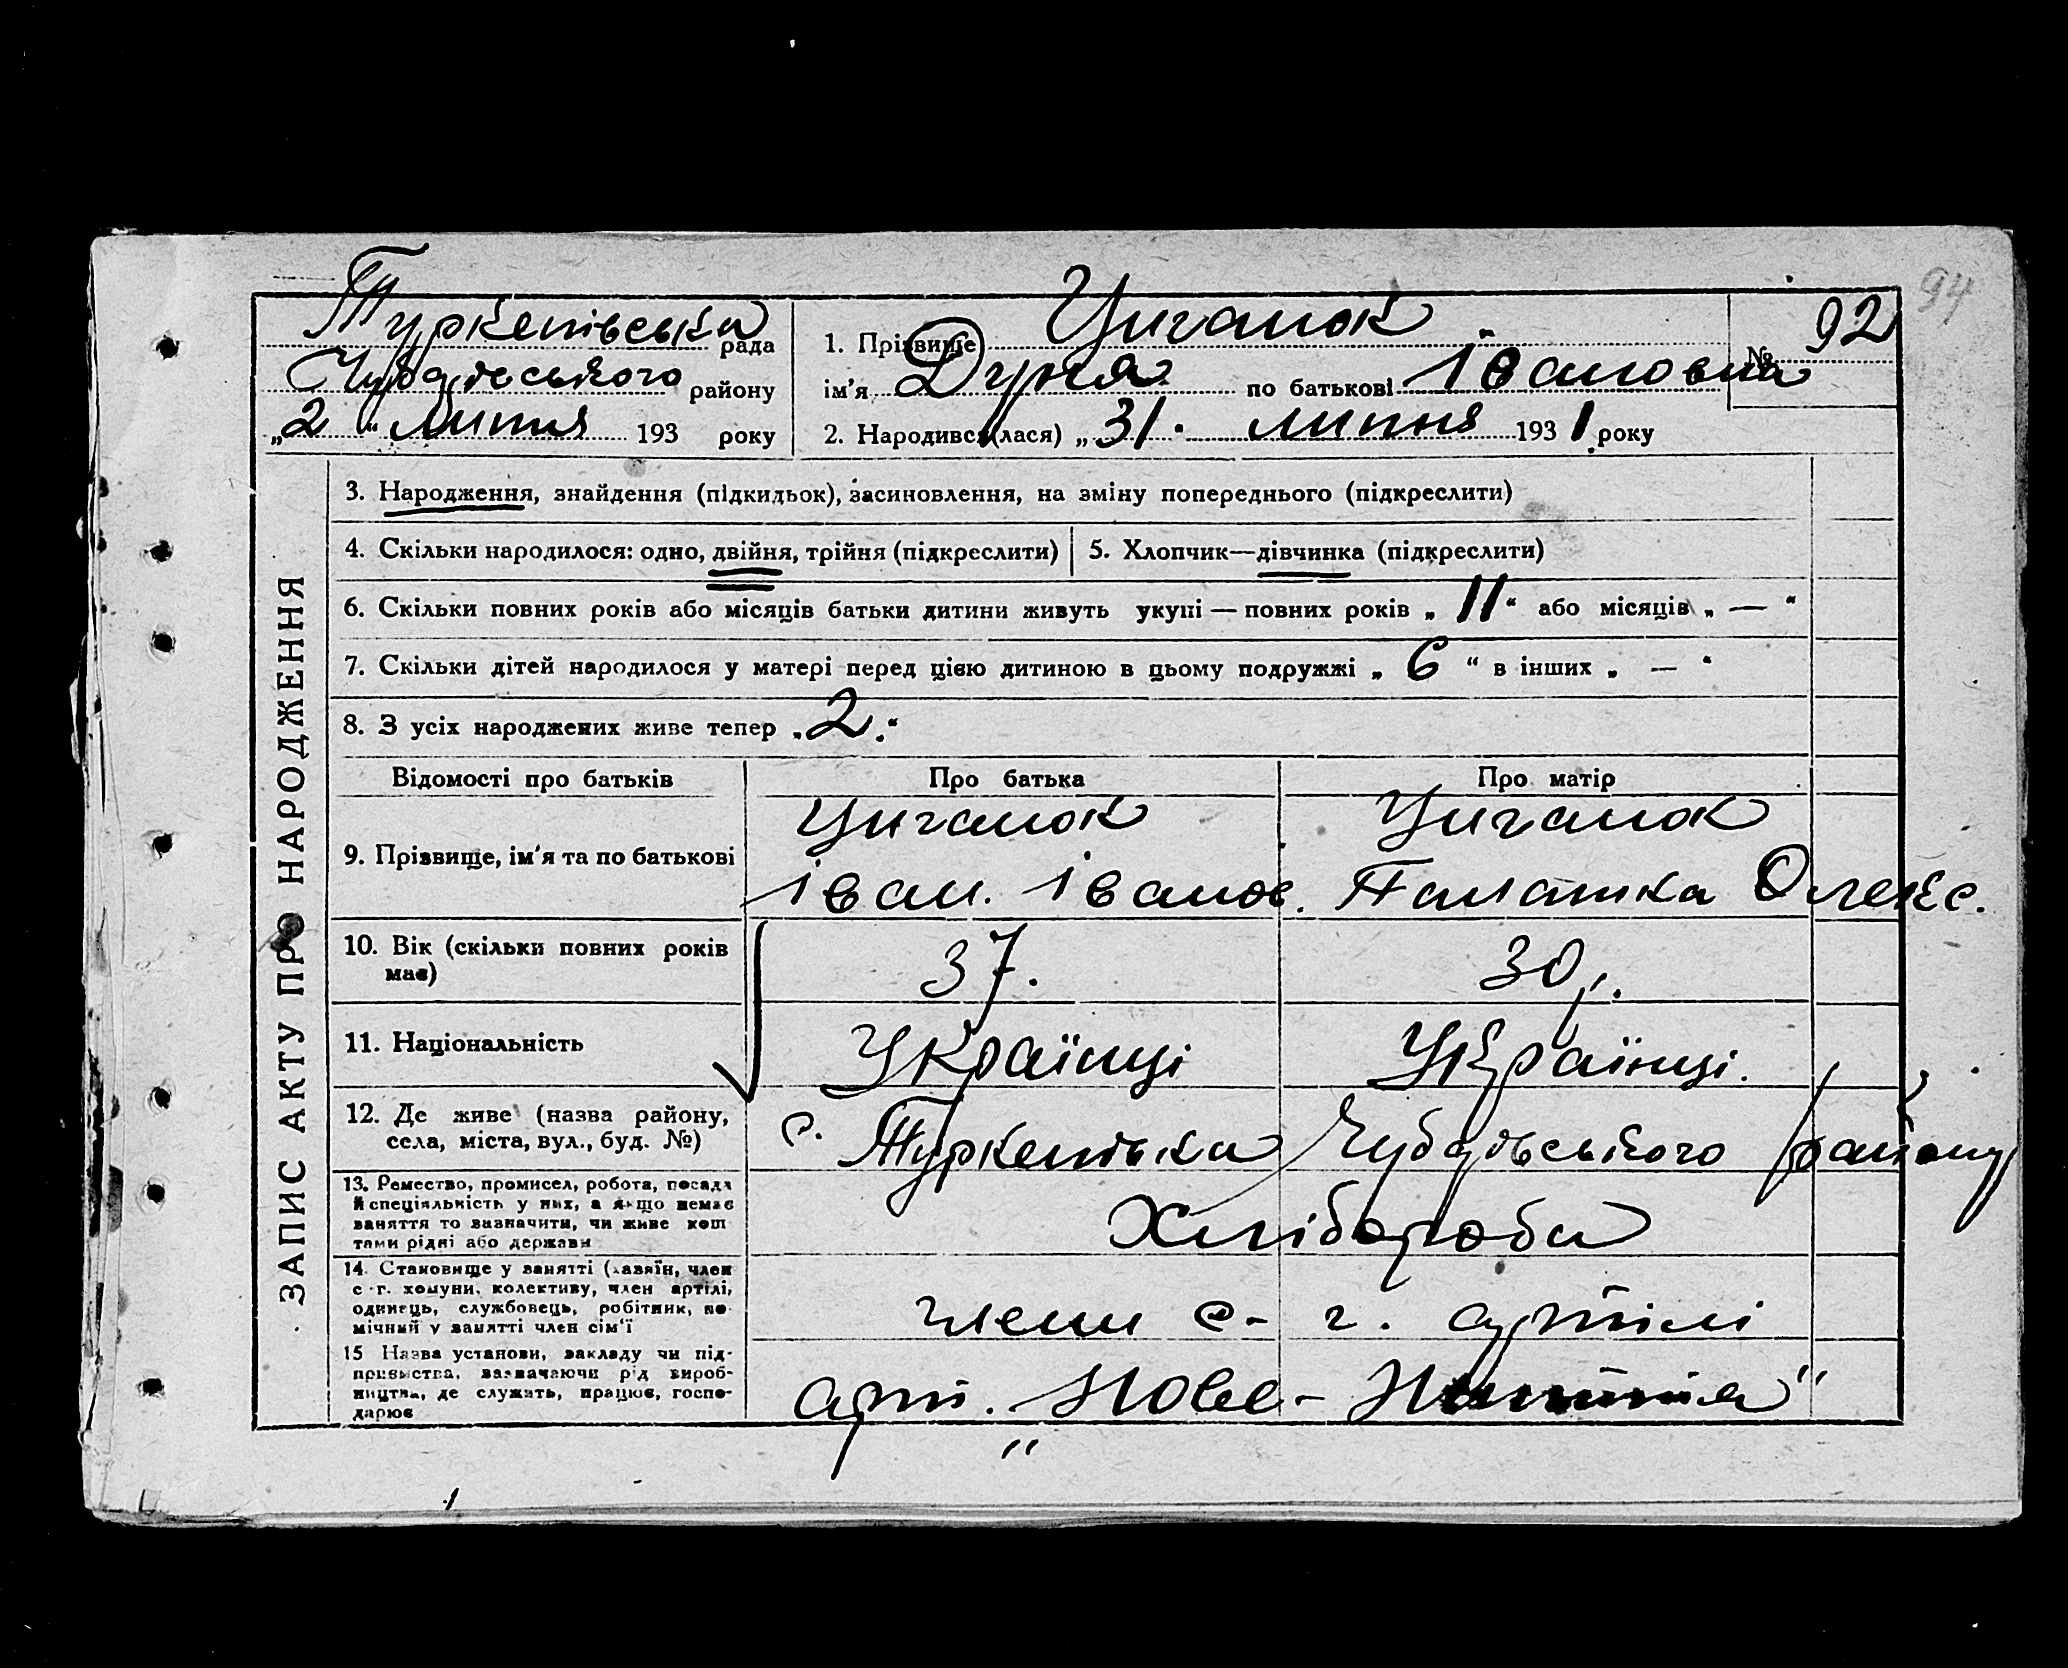 94
Туркенівська рада
Чубарівського району
„2“ липня 193 року
1. Прізвище Циганок
№ 92
ім'я Дуня по батькові Івановна
2. Народився(лася) „31. липня 1931 року
ЗАПИС АКТУ ПРО НАРОДЖЕННЯ
3. Народження, знайдення (підкидьок), засиновлення, на зміну попереднього (підкреслити)
4. Скільки народилося: одно, двійня, трійня (підкреслити)
5. Хлопчик—дівчинка (підкреслити)
6. Скільки повних років або місяців батьки дитини живуть укупі — повних років „11“ або місяців „—“
7. Скільки дітей народилося у матері перед цією дитиною в цьому подружжі „6“ в інших „—“
8. З усіх народжених живе тепер „2.“
Відомості про батьків
Про батька
Про матір
9. Прізвище, ім'я та по батькові
Циганок
Іван. Іванов.
Циганок
Палашка Олекс.
10. Вік (скільки повних років
має)
37.
30 р.
11. Національність
Українці
Українці.
12. Де живе (назва району,
села, міста, вул., буд. №)
с. Туркенівка Чубарівського району
13. Ремество, промисел, робота, посада
й спеціяльність у них, а якщо немає
заняття то зазначити, чи живе кош
тами рідні або держави
Хлібороби
14. Становище у занятті (хазяїн, член
с.-г. комуни, колективу, член артілі,
одинець, службовець, робітник, по-
мічний у занятті член сім'ї
члени с-г. артілі
15 Назва установи, закладу чи під-
приємства, зазначаючи рід вироб-
ництва, де служать, працює, госпо-
дарює
арт. „Нове-Життя“